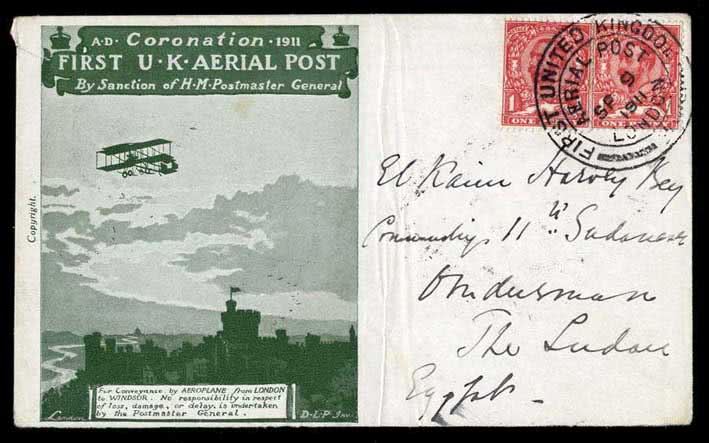 A·D· Coronation · 1911
FIRST U·K·AERIAL POST
By Sanction of H·M·Postmaster General
Copyright.
For Conveyance by AEROPLANE from LONDON
to WINDSOR. No responsibility in respect
of loss, damage, or delay, is undertaken
by the Postmaster General.
London
D·L·P Inv.
1
ONE
1
FIRST UNITED KINGDOM
AERIAL POST
SP 9
1911
LONDON
El Kaim Harvey Bey
11th Sudanese
Omdurman
The Sudan
Egypt.